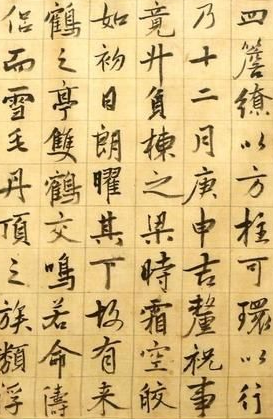 四簷繚以方柱可環以行
乃十二月庚申吉釐祝事
竟升負棟之梁時霜空皎
如初日朗曜其下故有来
鶴之亭雙鶴交鳴若命儔
侣而雪毛丹頂之族類浮